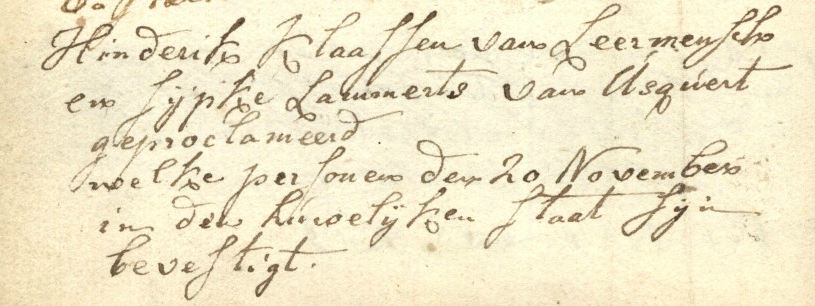 Hinderik Klaassen van Leermensch
en Sijpke Lammerts van Usquert
geproclameerd
welke persoonen den 20 November
in den huwelijken staat sijn
bevestigt.